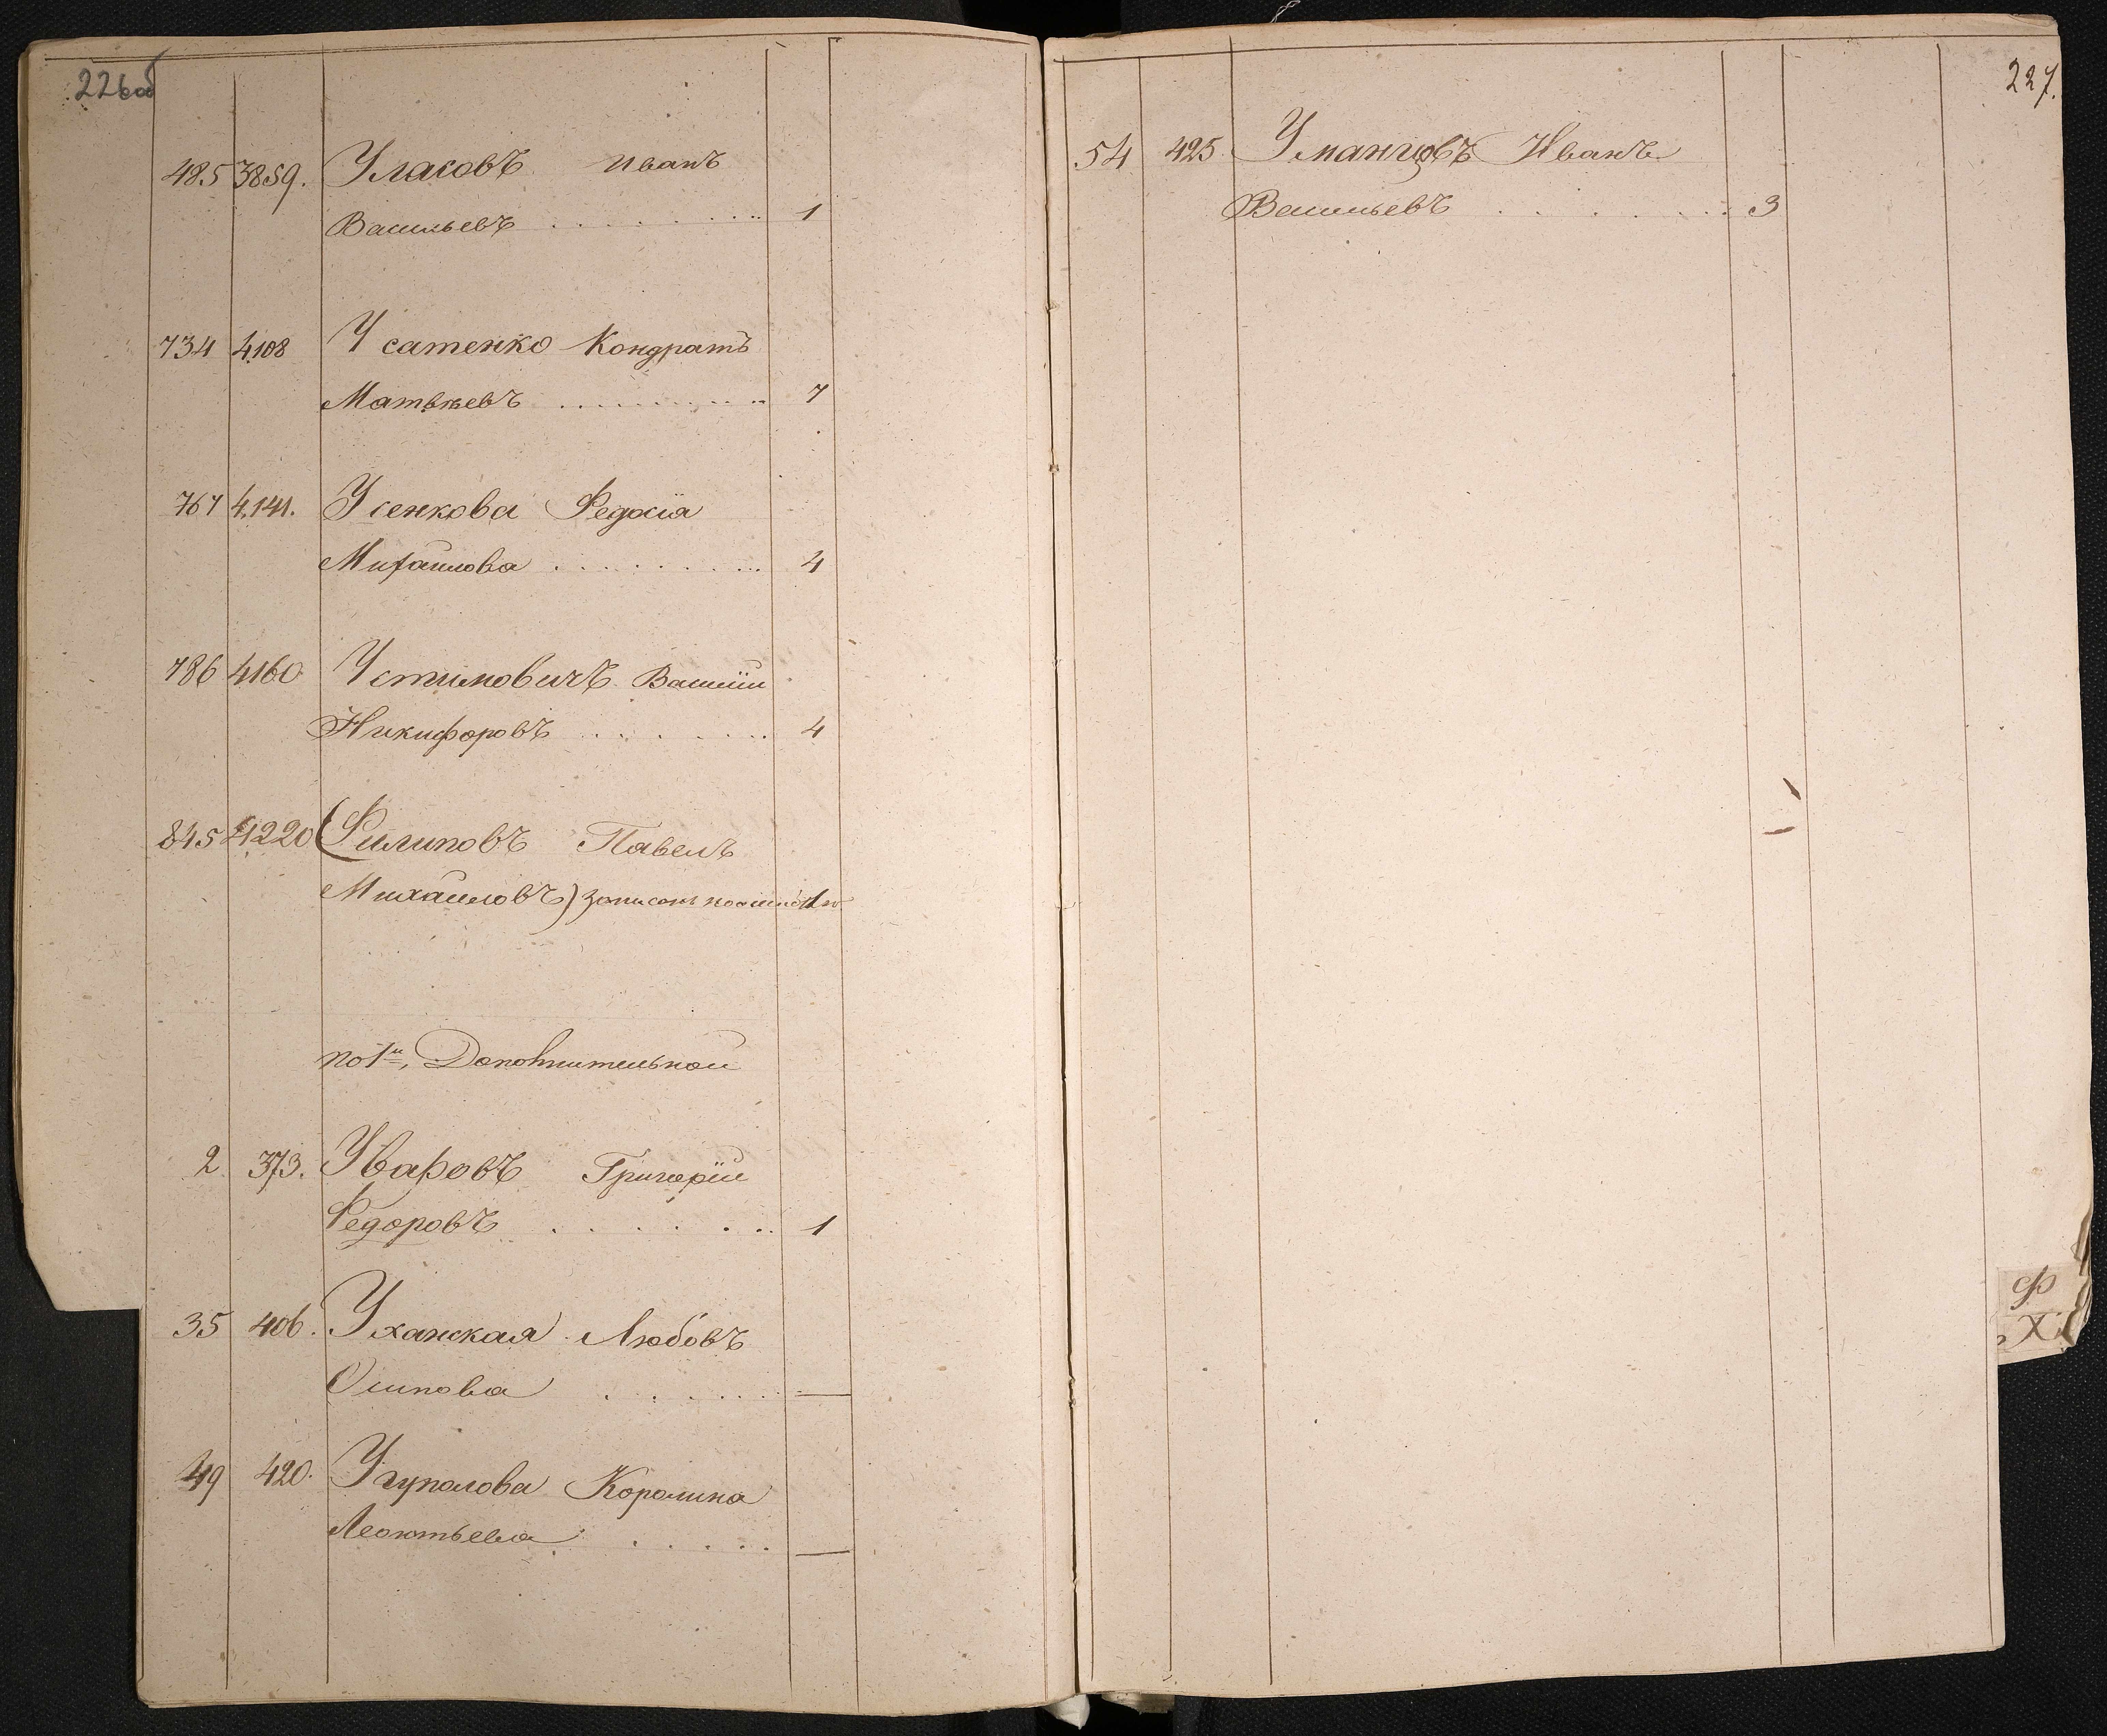 226об
485 3859. Уласовъ Иванъ
Васильевъ . . . . . . . . . 1
734 4108 Усатенко Кондратъ
Матвѣевъ . . . . . . . . . 7
767 4141. Усенкова Федосія
Михайлова . . . . . . . . . 4
786 4160 Устимовичъ Василій
Никифоровъ . . . . . . . 4
845 4220 (Филиповъ Павелъ
Михайловъ) записанъ 1
по 1й, Дополнительной
2 373. Уваровъ Григорій
Федоровъ . . . . . . . 1
35 406. Уханская Любовъ
Осипова . . . . . . . —
49 420. Угупалова Королина
Леонтьева . . . . . —
227.
54 425. Уманцовъ Иванъ
Васильевъ . . . . . . . 3
Ф
Х